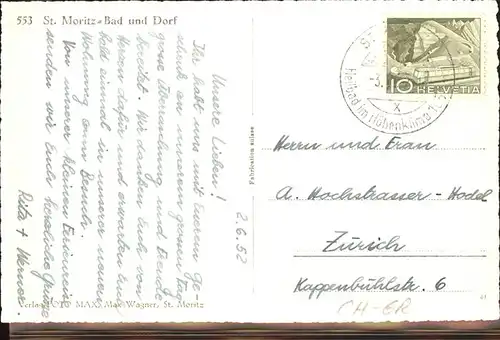 553 St. Moritz-Bad und Dorf
Unsere Lieben!
Ihr habt uns mit Eurem Ge-
schenk an unserem grossen Tag
grosse Überraschung und Freude
bereitet. Wir danken Euch von
Herzen dafür und erwarten Euch
bald einmal in unserer neuen
Wohnung zum Besuch.
Von unserer kleinen Ferienreise
senden wir Euch herzliche Grüsse
Rita + Werner.
2.6.52
Fabrication suisse
10 HELVETIA
Heilbad im Höhenklima
X
Herrn und Frau
A. Hochstrasser-Hodel
Zürich
Kappenbühlstr. 6
CH-GR
Verlag OTTO MAX, Max Wagner, St. Moritz